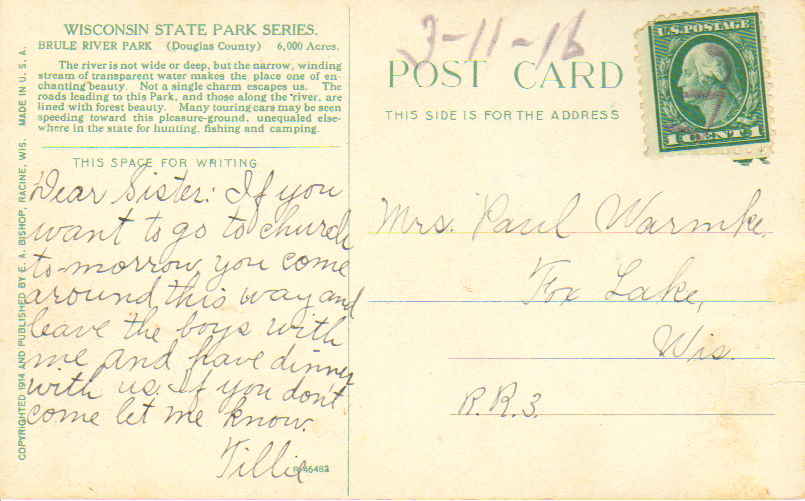 WISCONSIN STATE PARK SERIES.
BRULE RIVER PARK (Douglas County) 6,000 Acres.
The river is not wide or deep, but the narrow, winding
stream of transparent water makes the place one of en-
chanting beauty. Not a single charm escapes us. The
roads leading to this Park, and those along the river, are
lined with forest beauty. Many touring cars may be seen
speeding toward this pleasure-ground, unequaled else-
where in the state for hunting, fishing and camping.
THIS SPACE FOR WRITING
Dear Sister: If you
want to go to church
to-morrow you come
around this way and
leave the boys with
me and have dinner
with us. If you don't
come let me know.
Tillie
R-46483
COPYRIGHTED 1914 AND PUBLISHED BY E. A. BISHOP, RACINE, WIS. MADE IN U. S. A.
3-11-16
POST CARD
THIS SIDE IS FOR THE ADDRESS
U.S. POSTAGE
1 CENT 1
Mrs. Paul Warmke.
Fox Lake,
Wis.
R.R.3.